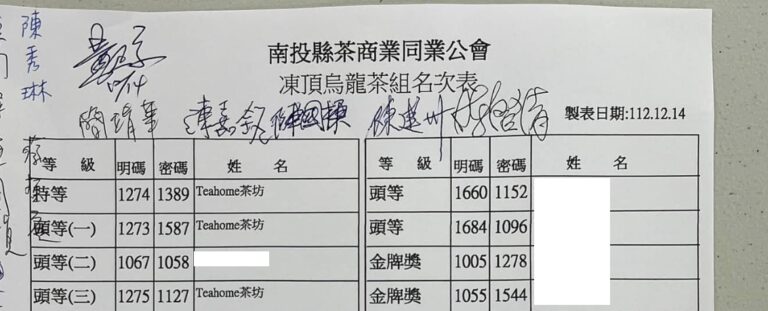 陳秀琳
南投縣茶商業同業公會
凍頂烏龍茶組名次表
製表日期:112.12.14
等 級 明碼 密碼 姓 名 等 級 明碼 密碼 姓 名
特等 1274 1389 Teahome茶坊 頭等 1660 1152
頭等(一) 1273 1587 Teahome茶坊 頭等 1684 1096
頭等(二) 1067 1058 金牌獎 1005 1278
頭等(三) 1275 1127 Teahome茶坊 金牌獎 1055 1544